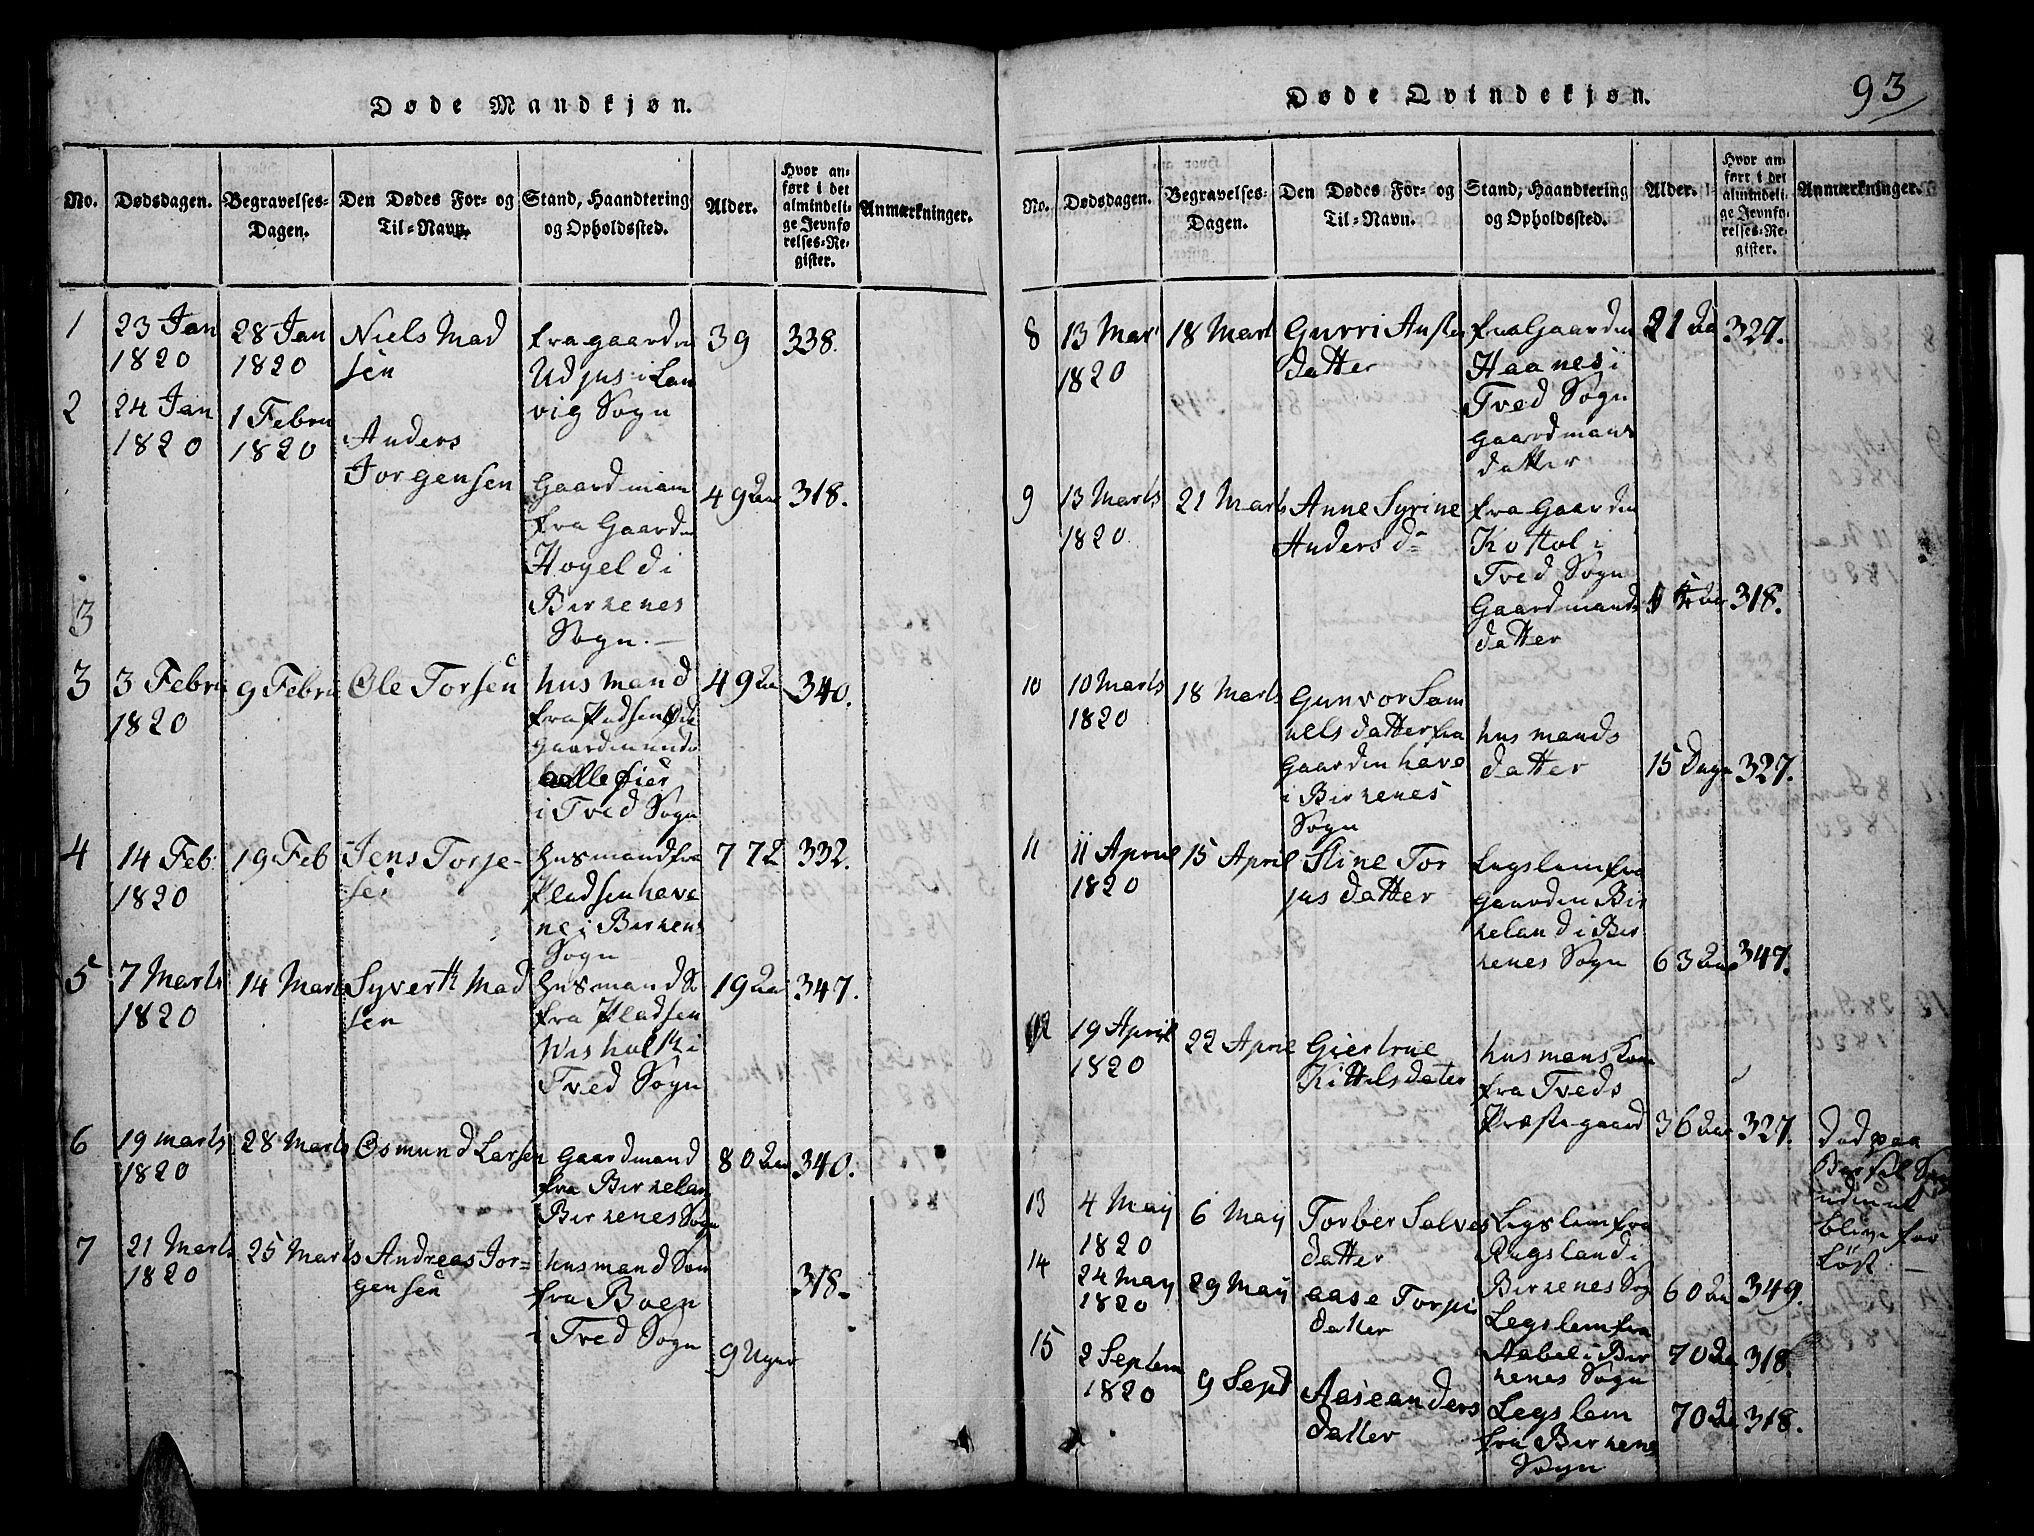 Døde Mandkjøn.
No.
Dødsdagen.
Begravelses-
Dagen.
Den Dødes For- og
Til-Navn.
Stand, Haandtering
og Opholdssted.
Alder.
Hvor an-
ført i det
almindeli-
ge Jevnfø
relses-Re-
gister.
Anmærkninger.
1
23 Jan
1820
28 Jan
1820
Niels Mad
sen
fra gaarden
Udjus i Lan
vig Sogn
39
338.
2
24 Jan
1820
1 Febru
1820
Anders
Jorgensen
Gaardmam
fra Gaarden
Hogeld i
Birkenes
Sogn.
49 Aar
318.
3
3
3 Febru
1820
9 Febru
Ole Torsen
husmand
fra Pladsen
gaardmunde
i Tved Sogn
49 Aar
340.
4
14 Feb
1820
19 Feb
Jens Torje-
sen
husmand fra
Pladsen have
ne i Birkenes
Sogn
72
332.
5
7 Marts
1820
14 Marts
Syvertt Mad
sen
husmand S
fra Pladsen
Wisholtt i
Tved Sogn
19 Aar
347.
6
19 marts
1820
28 Marts
Osmund Larsen
Gaardmand
fra Birkeland
Birkenes Sogn
80 Aar
340.
7
21 Marts
1820
25 Marts
Andreas Jor-
gensen
husmand Søn
fra Boen
i Tved Sogn
9 Uger
318.
Døde Qvindekjøn.
93
No.
Dødsdagen.
Begravelses-
Dagen.
Den Dødes For- og
Til-Navn.
Stand, Haandtering
og Opholdssted.
Alder.
Hvor an-
ført i det
almindeli-
ge Jevnfø-
relses-Re-
gister.
Anmærkninger.
8
13 Mar
1820
18 Mart
Gurri Austen
datter
fra Gaarden
Haanes i
Tved Sogn
Gaardmans
datter
21 Aar
327.
9
13 Marts
1820.
21 Marts
Anne Syrine
Anders d
fra Gaarden
Kottol i
Tved Sogn
Gaardmands
datter
318.
10
10 Marts
1820
18 Marts
Gunvor Sam
uels datter fra
Gaarden have
i Birkenes
Sogn
husmands
datter
15 Dage
327.
11
11 April
1820
15 April
Stine Tor
jus datter
Legslem fra
gaarden Bir
keland i Bir
kenes Sogn
63 Aar
347.
12
19 April
1820
22 April
Giertrue
Kittelsdater
husmans Kone
fra Tveds
Præstegaard
36 Aar
327.
Død paa
Barsel Seng
uden at
blive for
Løst.
13
4 Maij
1820
6 Maij
Torber Salves
datter
Legslem fra
Rugsland i
Birkenes Sog
60 Aar
349.
14
24 Maij
1820
29 Maij
aase Torjus
datter
Legslem fra
Aabel i Bir
kenes Sogn
70 Aar
318.
15
2 Septem
1820
9 Sept
Aase anders
datter
Legslem
fra Birkenes
Sogn
70 Aar
318.